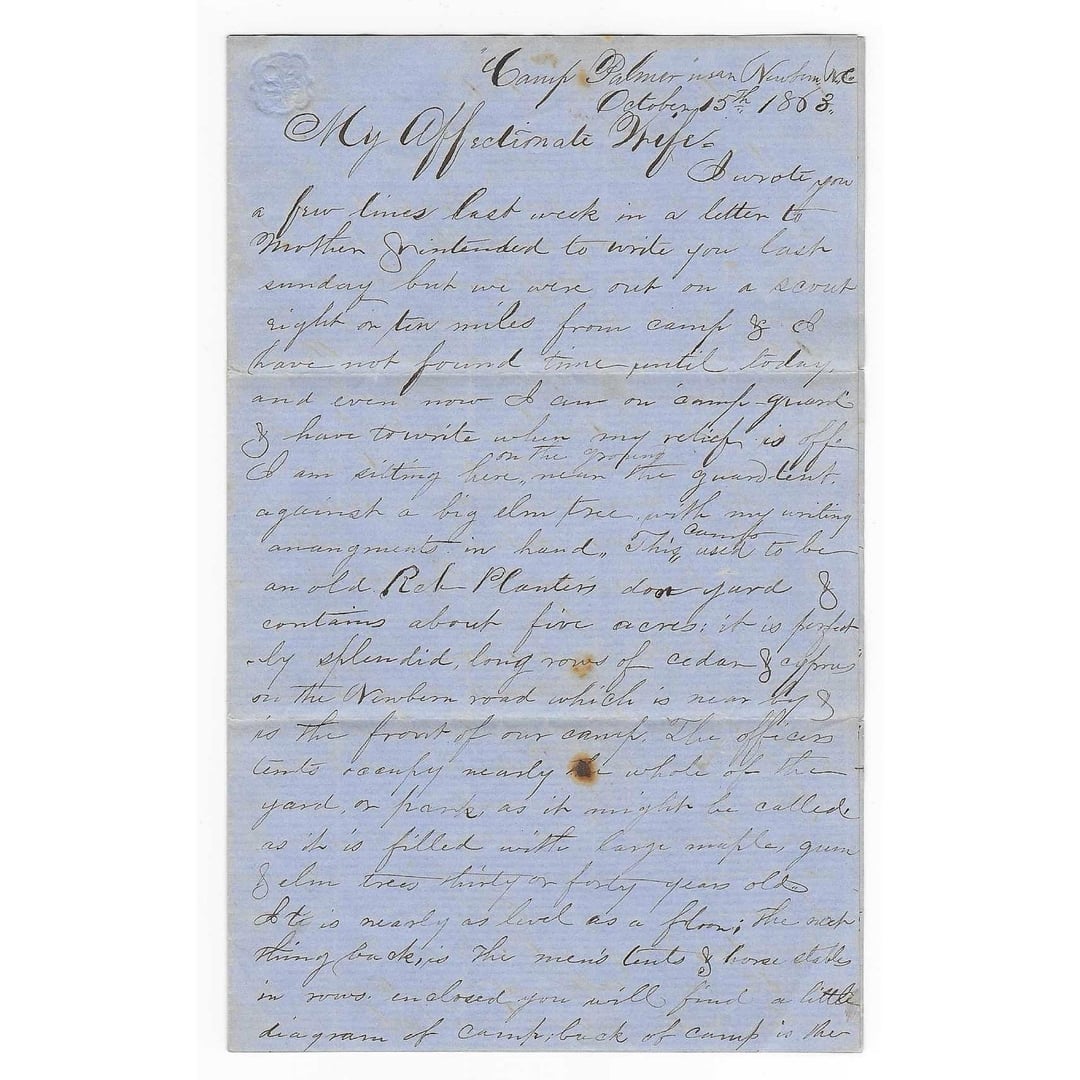 "Camp Palmer near Newbern N.C.
October 15th 1863.
My Affectionate Wife-
I wrote you
a few lines last week in a letter to
Mother & intended to write you last
sunday but we were out on a scout
eight or ten miles from camp & I
have not found time until today,
and even now I am on camp-guard
& have to write when my relief is off.
on the
I am sitting here, near the guard-tent.
against a big elm tree with my writing
camp
arrangments in hand, This used to be
an old Reb Planters door yard &
contains about five acres; it is perfect
-ly splendid, long rows of cedar & cyprus
on the Newbern road which is near by &
is the front of our camp. The officers
tents occupy nearly the whole of the
yard, or park, as it might be called,
as it is filled with large maple, gum
& elm trees thirty or forty years old.
It is nearly as level as a floor; the next
thing back, is the men's tents & horse stables
in rows. enclosed you will find a little
diagram of camp. back of camp is the